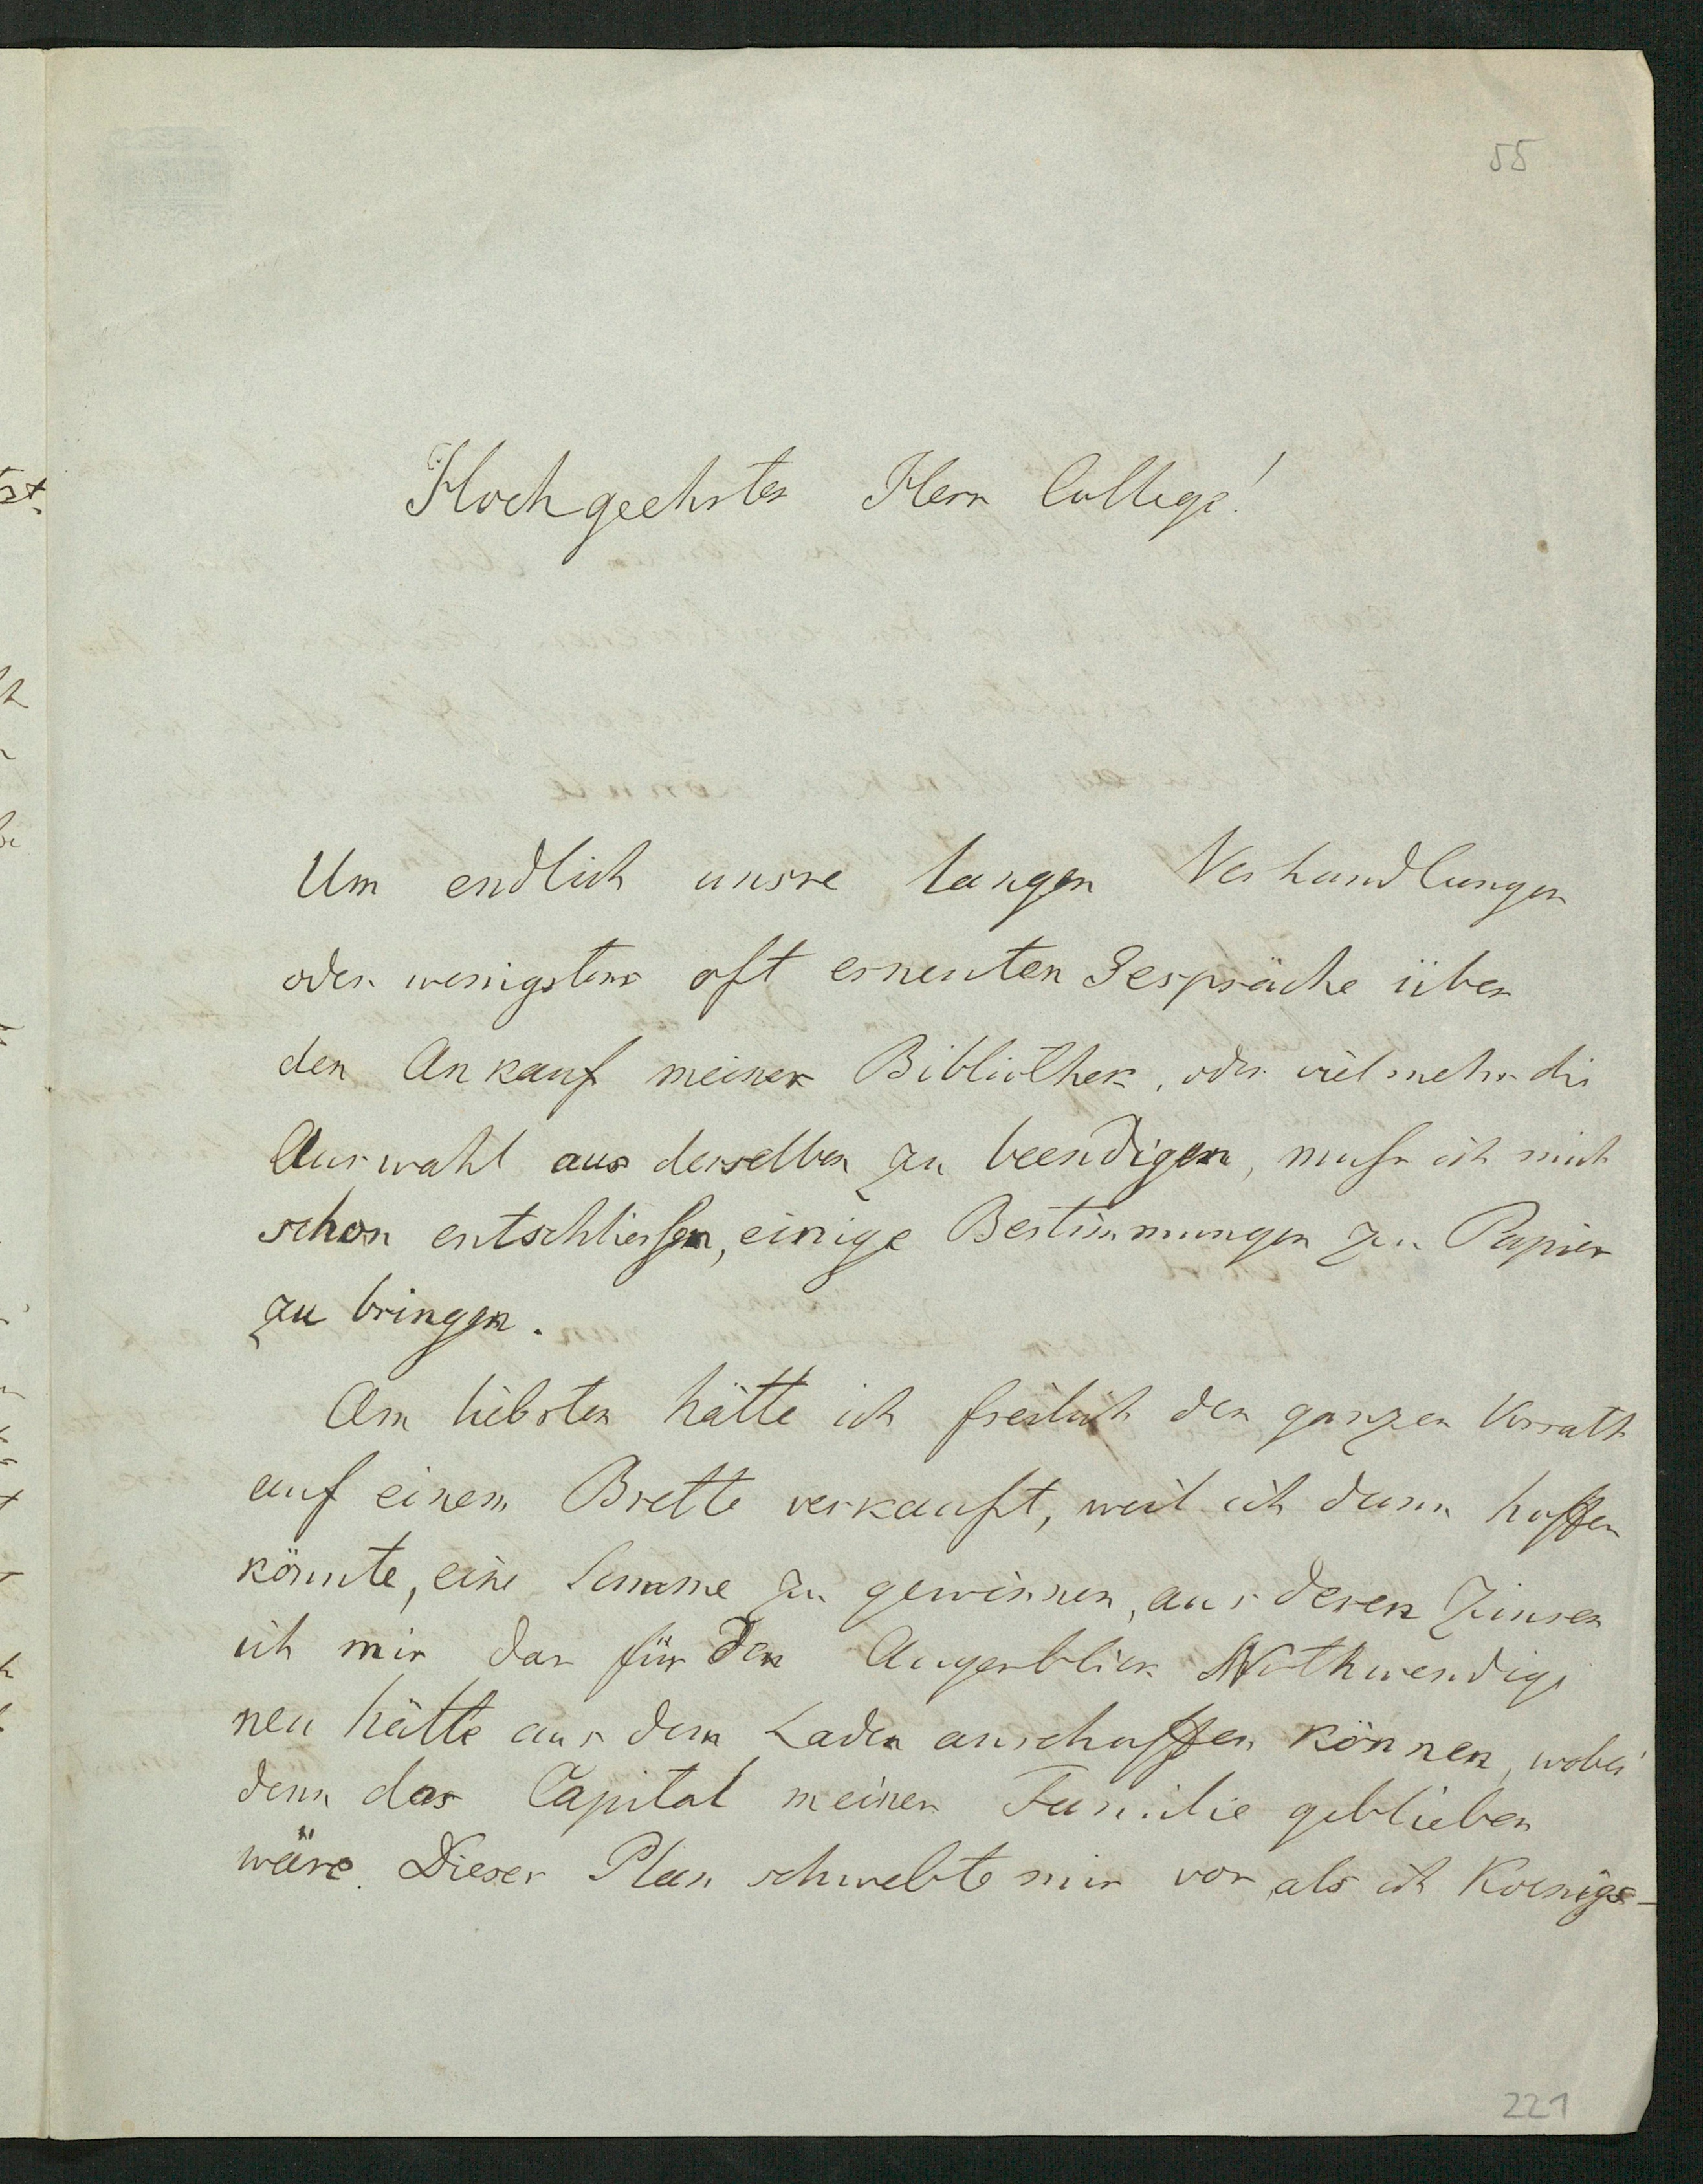 55
Hochgeehrter Herr College!
Um endlich unsre langen Verhandlungen
oder wenigstens oft erneuten Gespräche über
den Ankauf meiner Bibliothek, oder vielmehr die
Auswahl aus derselben zu beendigen, muß ich mich
schon entschließen, einige Bestimmungen zu Papier
zu bringen.
Am liebsten hätte ich freilich den ganzen Vorrath
auf einem Brette verkauft, weil ich dann hoffen
könnte, eine Summe zu gewinnen, aus deren Zinsen
ich mir das für den Augenblick Nothwendige
neu hätte aus dem Laden anschaffen können, wobei
denn das Capital meiner Familie geblieben
wäre. Dieser Plan schwebte mir vor, als ich Koenigs-
221